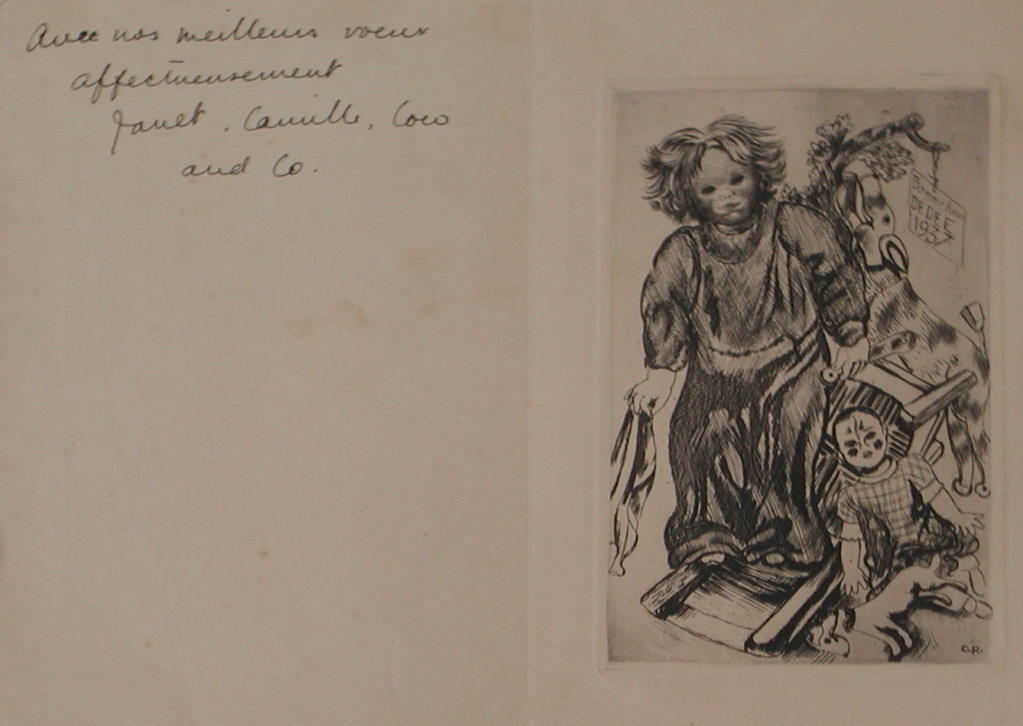 Avec nos meilleurs voeux
affectueusement
Janet, Camille, Coco
and Co.
DE DEE
C.R.